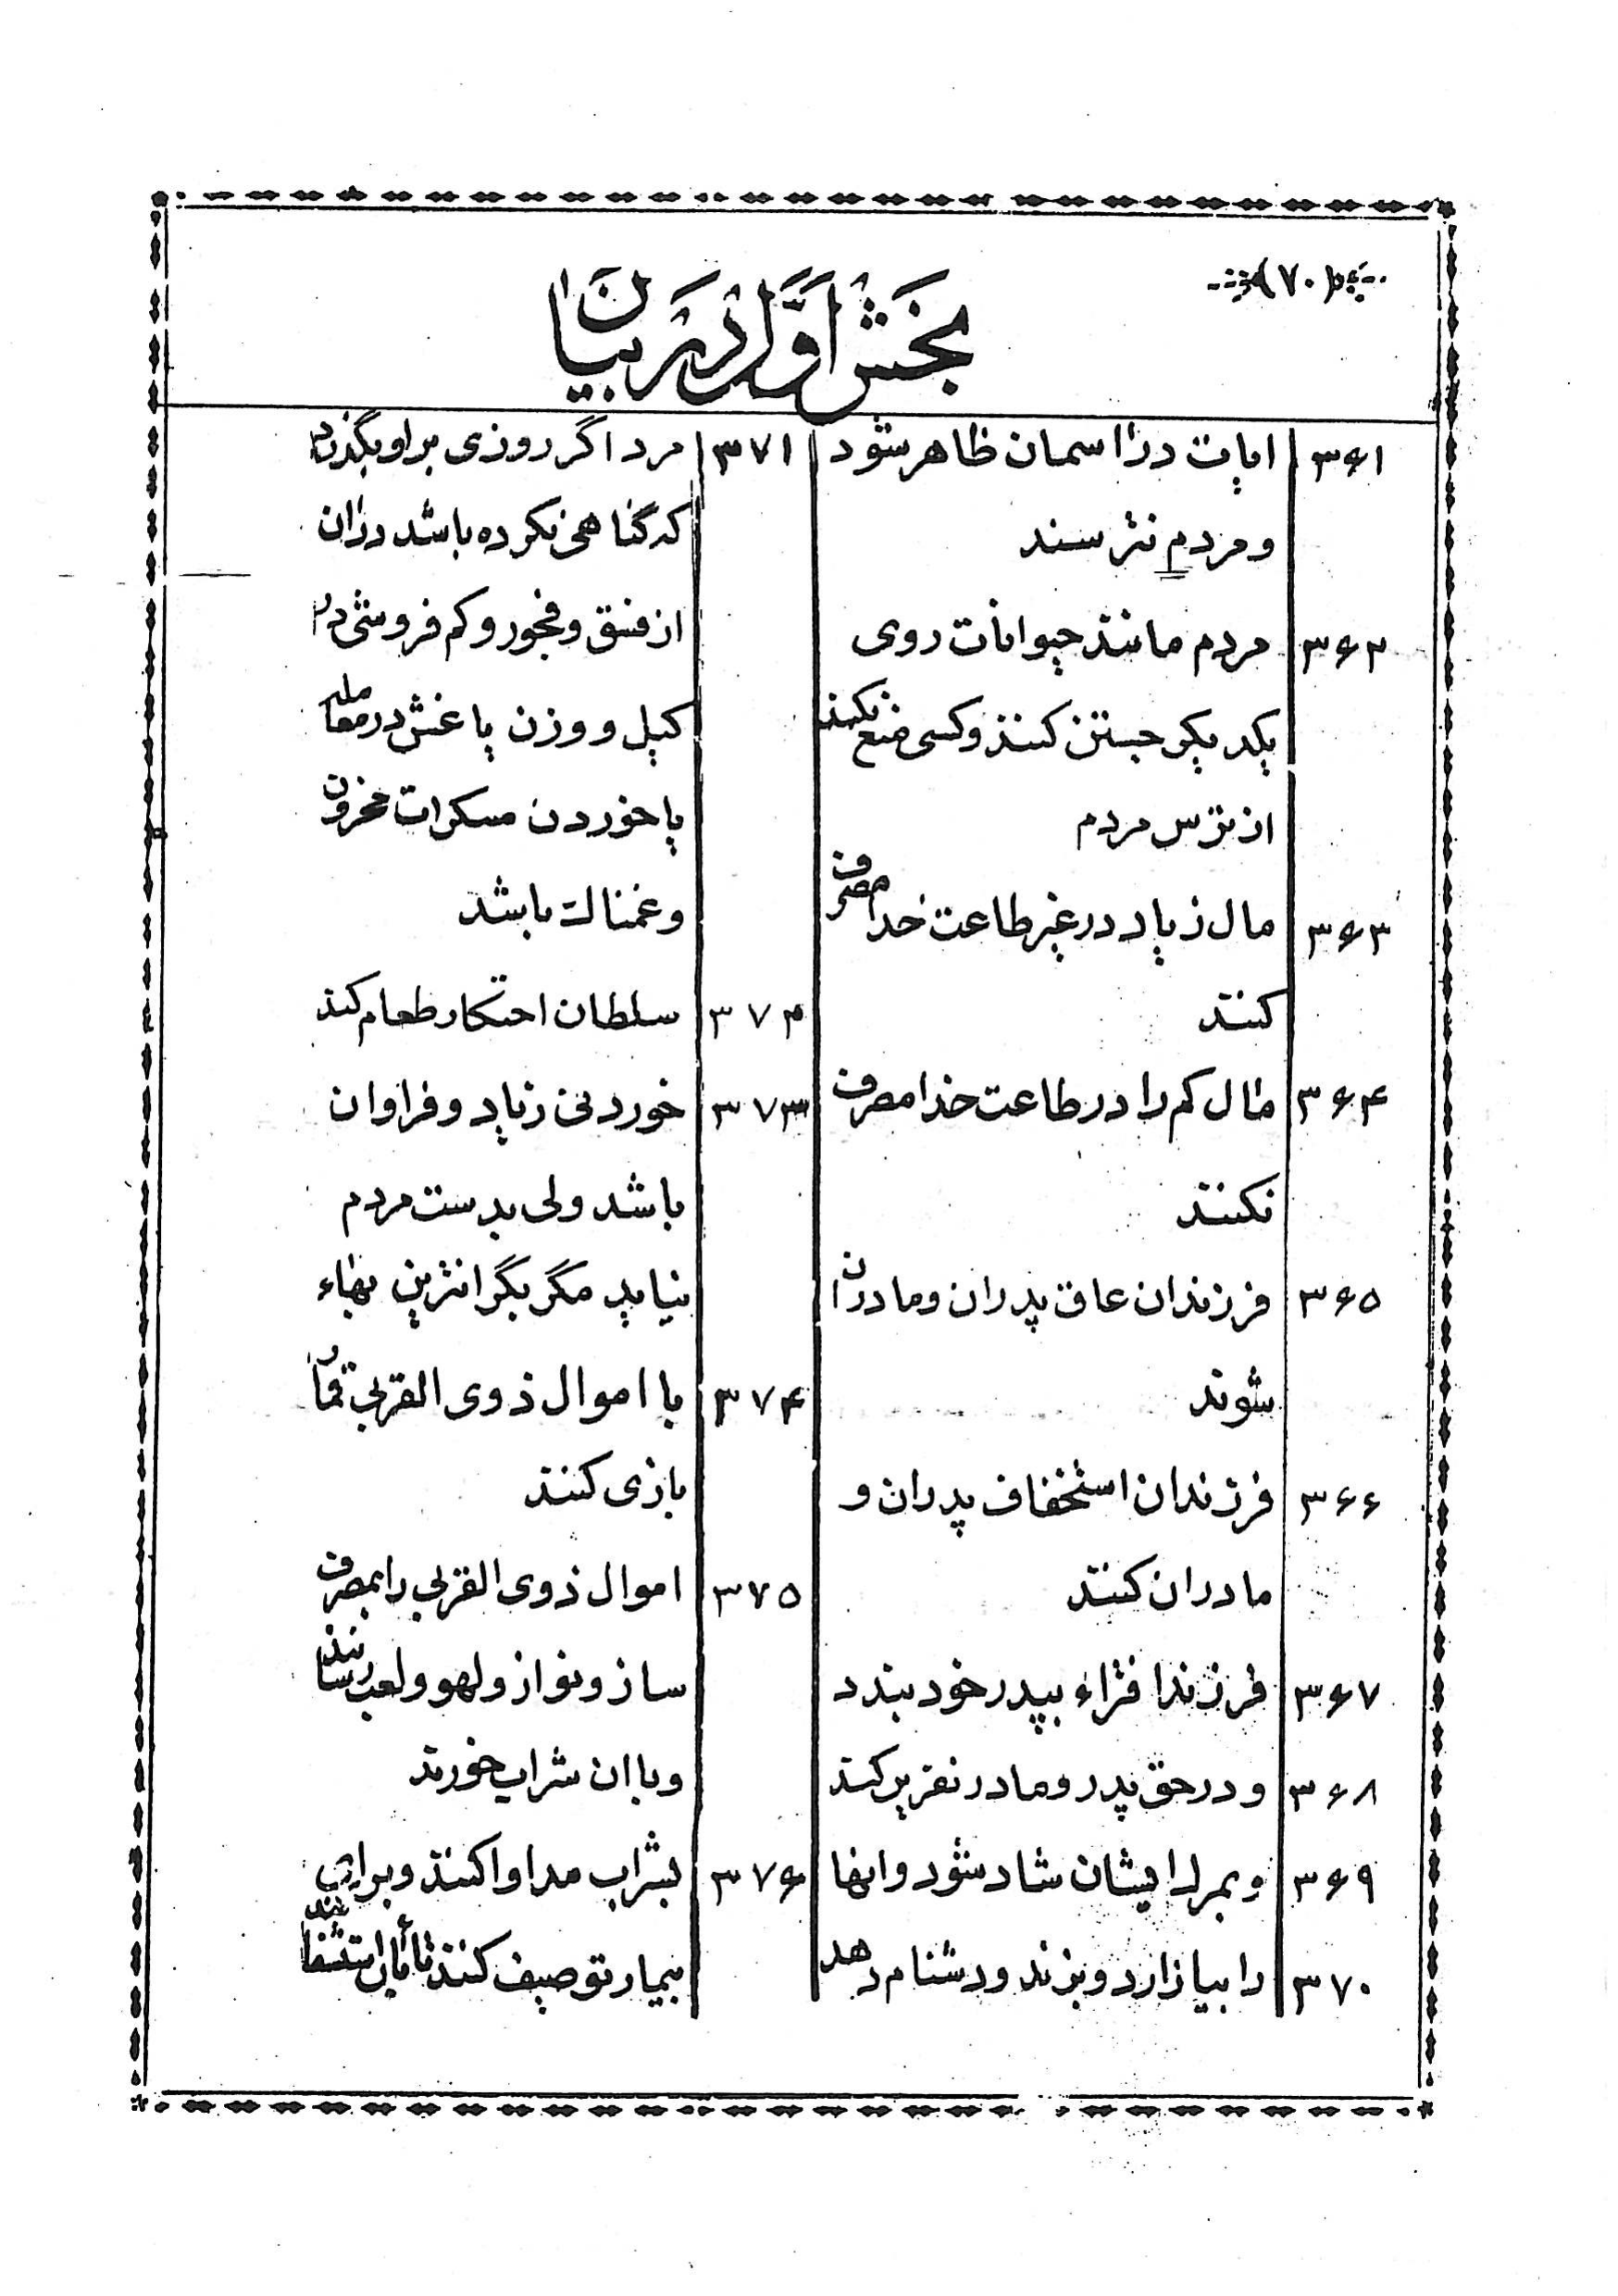 (۷۰)
بخش اوّل در بیان
۳۶۱ ایات در اسمان ظاهر شود
و مردم نترسند
۳۶۲ مردم مانند حیوانات روی
یکدیگر جستن کنند و کسی منع نکند
از ترس مردم
۳۶۳ مال زیاد در غیر طاعت خدا مصرف
کنند
۳۶۴ مال کم را در طاعت خدا مصرف
نکنند
۳۶۵ فرزندان عاق پدران و مادران
شوند
۳۶۶ فرزندان استخفاف پدران و
مادران کنند
۳۶۷ فرزند افتراء بپدر خود بندد
۳۶۸ و در حق پدر و مادر نفرین کند
۳۶۹ و بمرك ایشان شاد شود و انها
۳۷۰ را بیازارد و بزند و دشنام دهد
۳۷۱ مرد اگر روزی بر او بگذرد
که گناهی نکرده باشد در ان
از فسق و فجور و کم فروشی در
کیل و وزن یا غش در معامله
یا خوردن مسکرات محزون
و غمناك باشد
۳۷۲ سلطان احتکار طعام کند
۳۷۳ خوردنی زیاد و فراوان
باشد ولی بدست مردم
نیاید مگر بگرانترین بهاء
۳۷۴ با اموال ذوی القربی قمار
بازی کنند
۳۷۵ اموال ذوی القربی را بمصرف
ساز و نواز و لهو و لعب رسانند
و با ان شراب خورند
۳۷۶ بشراب مداوا کنند و برای
بیمار توصیف کنند تا بان استشفا